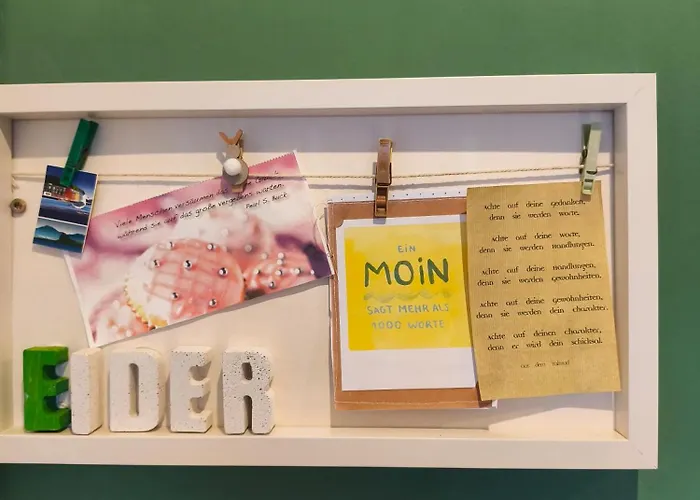 Viele Menschen versäumen das kleine Glück,
während sie auf das große vergebens warten.
Pearl S. Buck
EIN
MOIN
SAGT MEHR ALS
1000 WORTE
Achte auf deine Gedanken,
denn sie werden Worte.
Achte auf deine Worte,
denn sie werden Handlungen.
Achte auf deine Handlungen,
denn sie werden Gewohnheiten.
Achte auf deine Gewohnheiten,
denn sie werden dein Charakter.
Achte auf deinen Charakter,
denn er wird dein Schicksal.
aus dem Talmud
EIDER